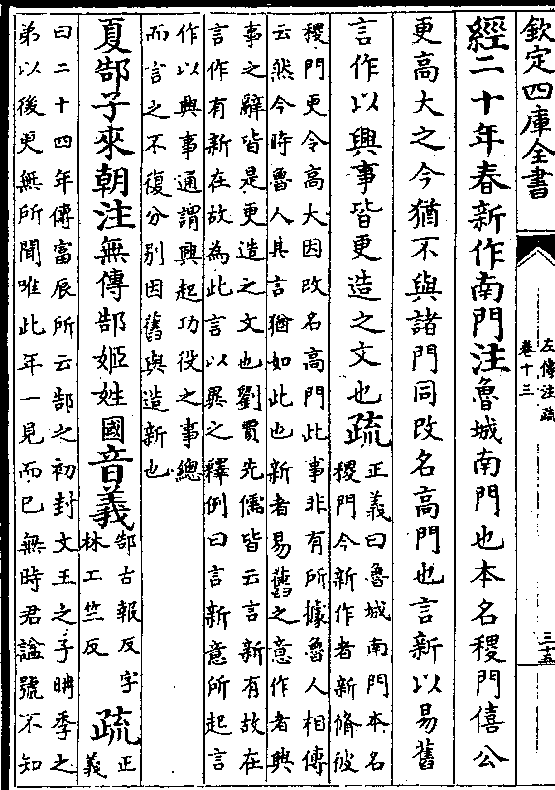 欽定四庫全書
左傳注疏
卷十三
三十五
經二十年春新作南門注魯城南門也本名稷門僖公
更高大之今猶不與諸門同改名高門也言新以易舊
言作以興事皆更造之文也疏
正義曰魯城南門本名
稷門今新作者新脩彼
稷門更令高大因改名高門此事非有所據魯人相傳
云然今時魯人其言猶如此也新者易舊之意作者興
事之辭皆是更造之文也劉賈先儒皆云言新有故在
言作有新在故為此言以異之釋例曰言新意所起言
作以興事通謂興起功役之事總
而言之不復分別因舊與造新也
夏郜子來朝注無傳郜姬姓國音義
郜古報反字
林工竺反
疏
正
義
曰二十四年傳富辰所云郜之初封文王之子聃季之
弟以後更無所聞唯此年一見而已無時君諡號不知